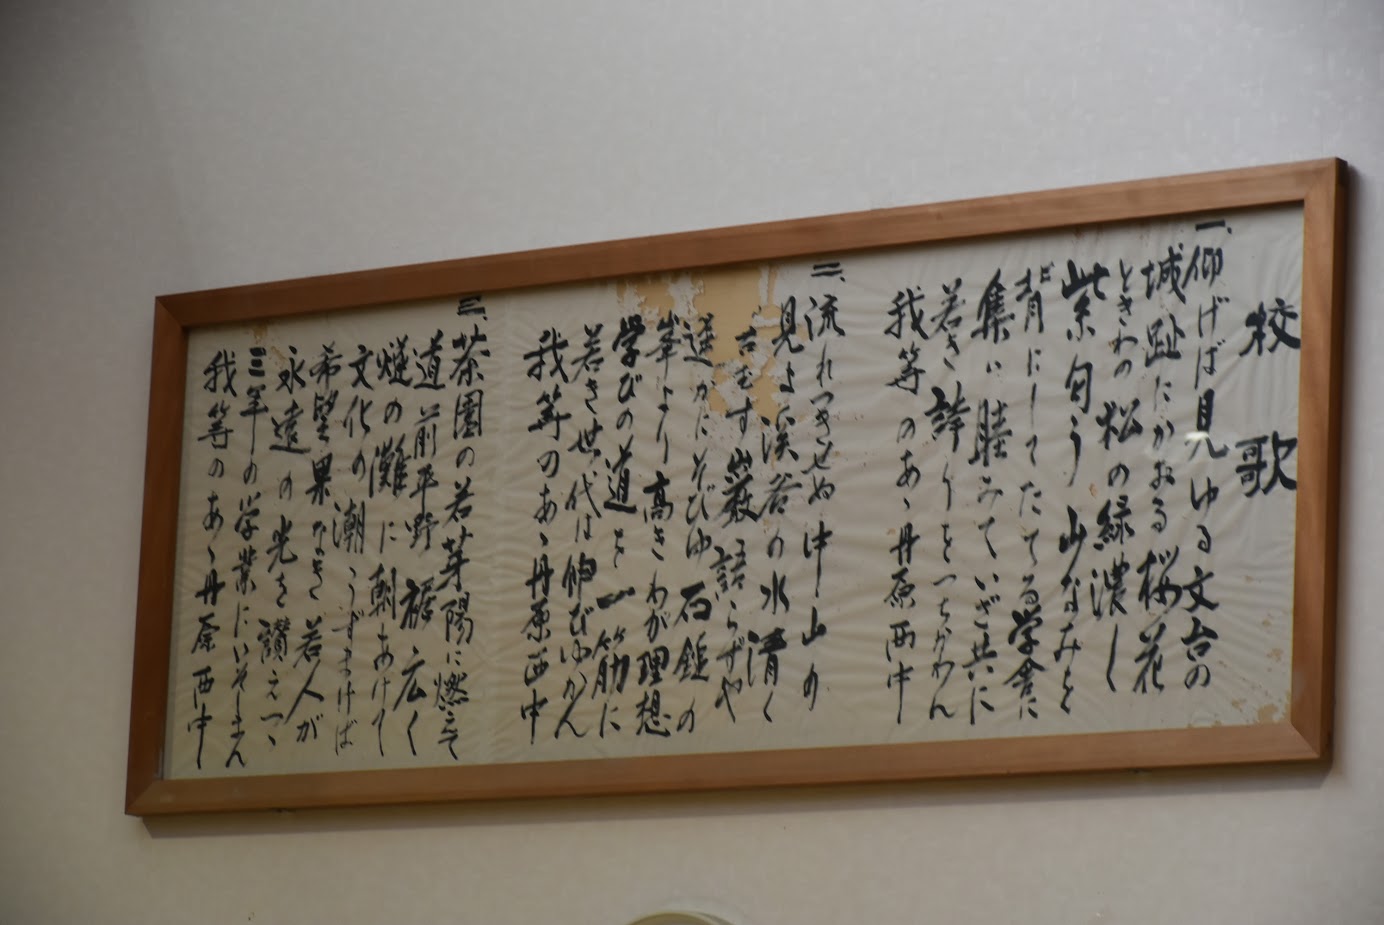 校歌
一、仰げば見ゆる文台の
城趾にかおる桜花
ときわの松の緑濃し
紫匂う山なみを
背にしてたてる学舎に
集い睦みていざ共に
若き誇りをつちかわん
我等のあゝ丹原西中
二、流れつきせぬ中山の
見よ渓谷の水清く
古むす巌語らずや
遥かにそびゆ石鎚の
峯より高きわが理想
学びの道を一筋に
若き世代は伸びゆかん
我等のあゝ丹原西中
三、茶園の若芽陽に燃えて
道前平野裾広く
燧の灘に朝あけて
文化の潮うずまけば
希望果なき若人が
永遠の光を讃えつゝ
三年の学業にいそしまん
我等のあゝ丹原西中